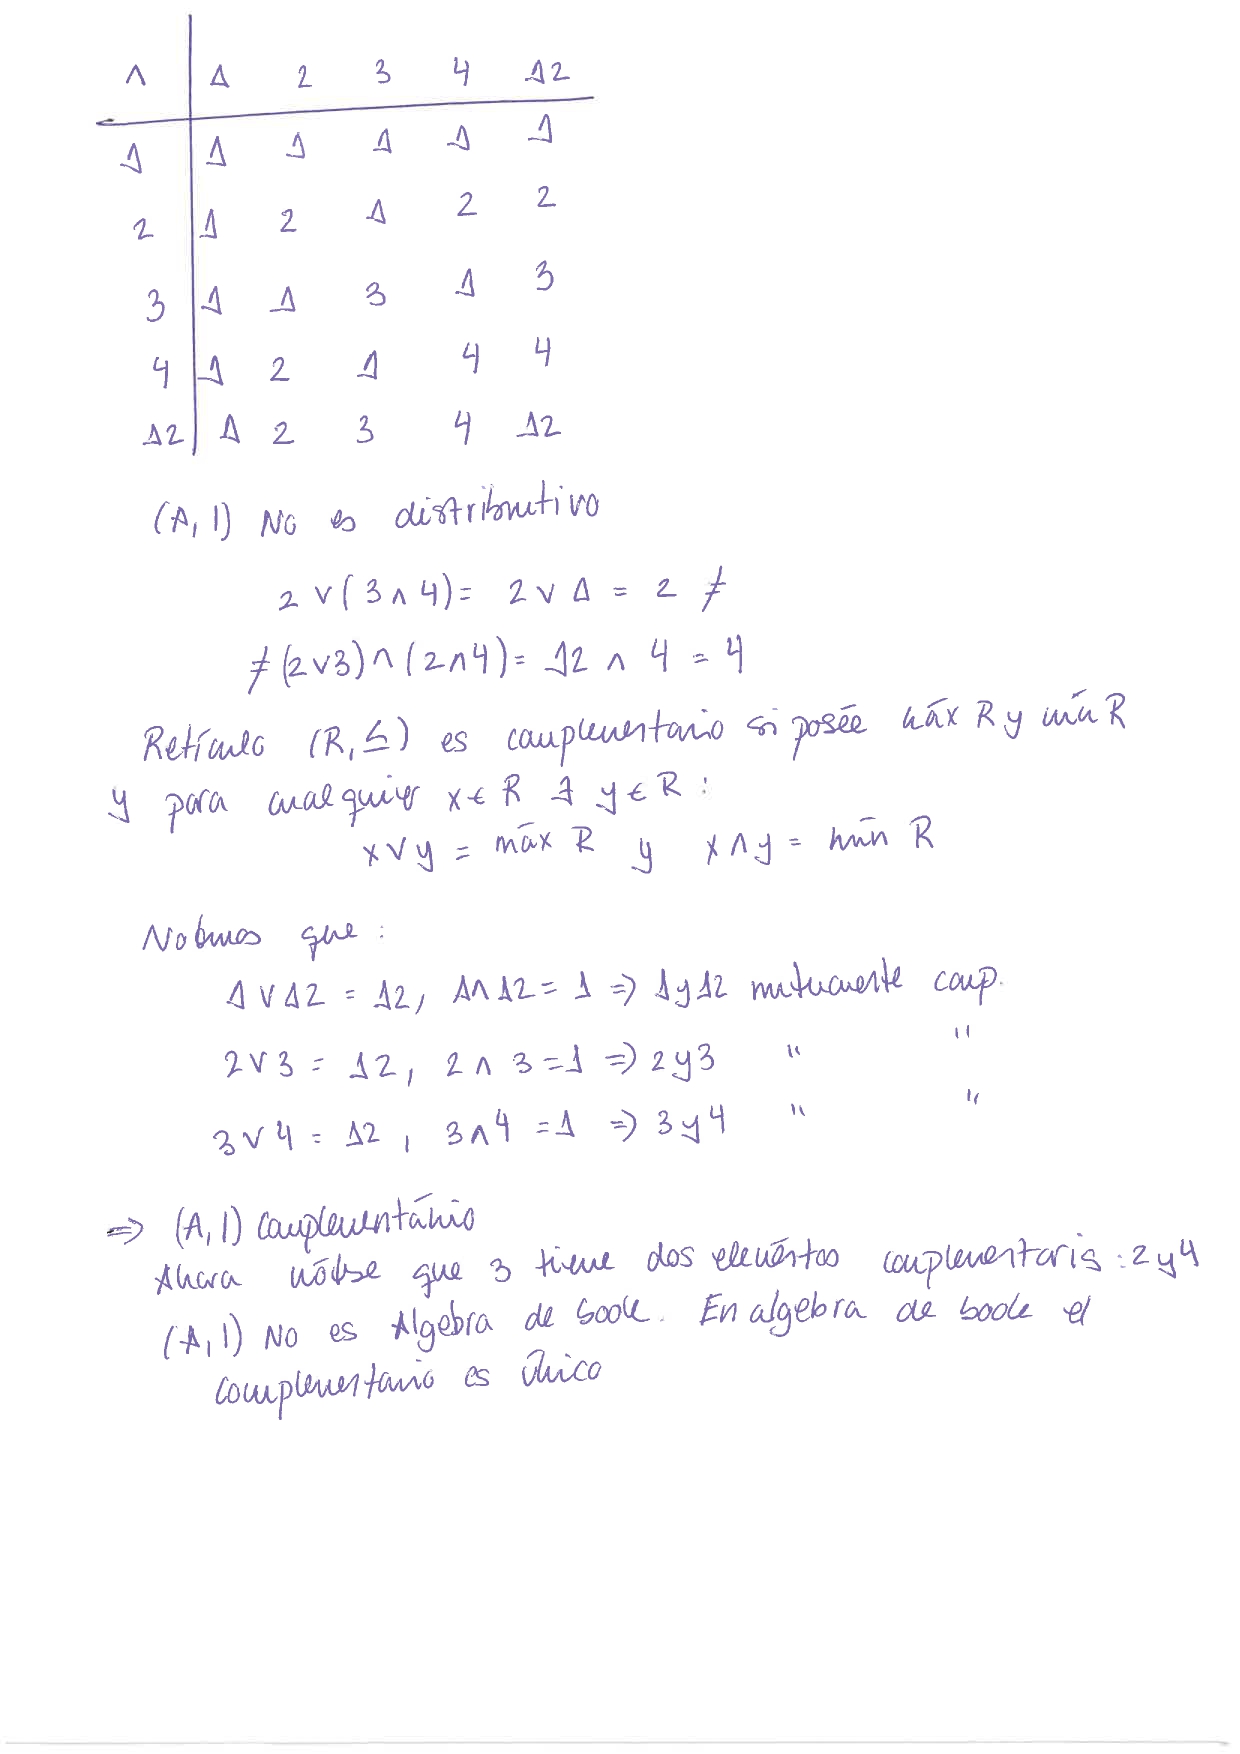 ∧ 1 2 3 4 12
1 1 1 1 1 1
2 1 2 1 2 2
3 1 1 3 1 3
4 1 2 1 4 4
12 1 2 3 4 12
(A, |) No es distributivo
2 ∨ (3 ∧ 4) = 2 ∨ 1 = 2 ≠
≠ (2∨3) ∧ (2∧4) = 12 ∧ 4 = 4
Retículo (R, ≤) es complementario si posée máx R y mín R
y para cualquier x ∈ R ∃ y ∈ R :
x ∨ y = máx R y x ∧ y = mín R
Notemos que :
1 ∨ 12 = 12, 1 ∧ 12 = 1 ⇒ 1 y 12 mutuamente comp.
2 ∨ 3 = 12, 2 ∧ 3 = 1 ⇒ 2 y 3 " "
3 ∨ 4 = 12, 3 ∧ 4 = 1 ⇒ 3 y 4 " "
⇒ (A, |) complementário
Ahora nótese que 3 tiene dos eleméntos complementaris : 2 y 4
(A, |) No es Algebra de boole. En algebra de boole el
complementario es único